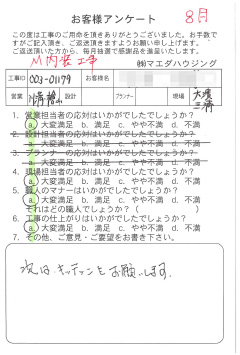 お客様アンケート
8月
この度は工事のご用命を頂きありがとうございました。お手数で
すがご記入頂き、ご返送頂きますようお願い申し上げます。ご
返送頂いた方から、毎月抽選で感謝品を進呈いたします。
M内装工事
㈱マエダハウジング
工事ID 003-01179 お客様名
営業 設計 プランナー 現場
1. 営業担当者の応対はいかがでしたでしょうか?
a. 大変満足 b. 満足 c. やや不満 d. 不満
2. 設計担当者の応対はいかがでしたでしょうか?
a. 大変満足 b. 満足 c. やや不満 d. 不満
3. プランナーの応対はいかがでしたでしょうか?
a. 大変満足 b. 満足 c. やや不満 d. 不満
4. 現場担当者の応対はいかがでしたでしょうか?
a. 大変満足 b. 満足 c. やや不満 d. 不満
5. 職人のマナーはいかがでしたでしょうか?
a. 大変満足 b. 満足 c. やや不満 d. 不満
それはどの職人でしょうか?( )
6. 工事の仕上がりはいかがでしたでしょうか?
a. 大変満足 b. 満足 c. やや不満 d. 不満
7. その他、ご意見・ご要望をお書き下さい。
次はキッチンをお願いします。